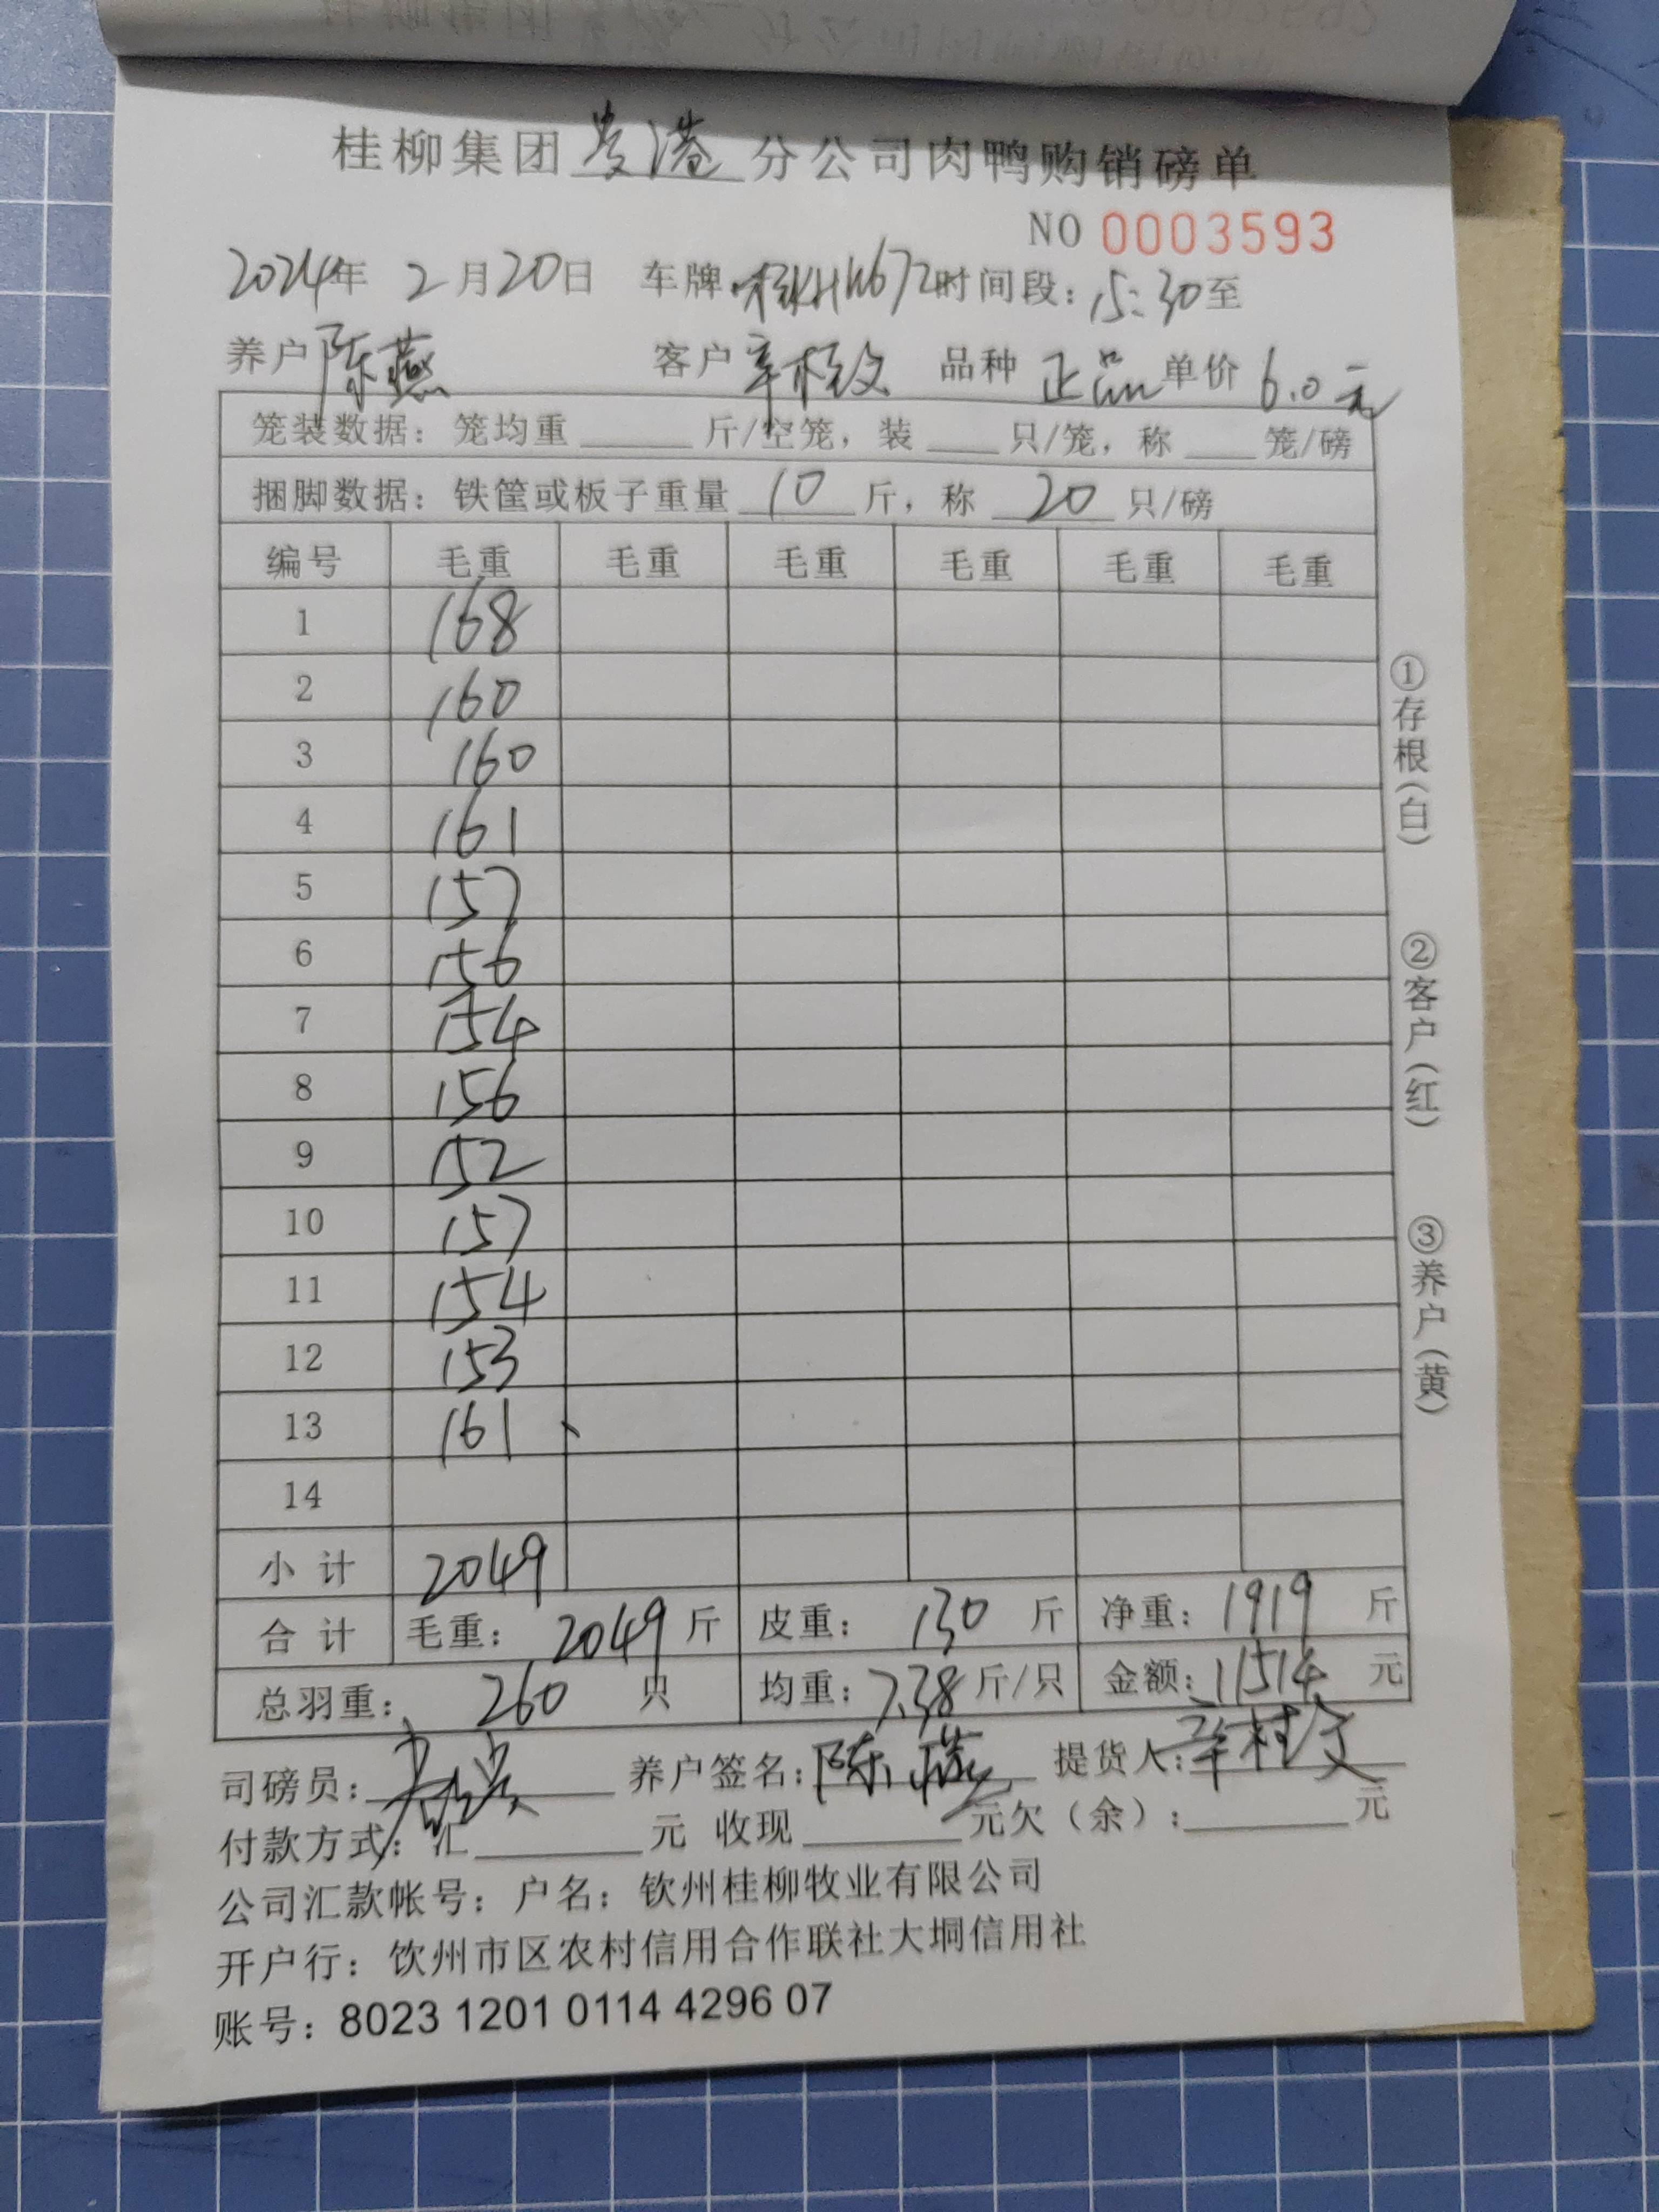 桂柳集团贵港分公司肉鸭购销磅单
NO 0003593
2024年 2月20日 车牌 时间段：15:30至
养户陈燕 客户辛桂文 品种 正品 单价 6.0元
笼装数据：笼均重______斤/空笼，装____只/笼，称____笼/磅
捆脚数据：铁筐或板子重量 10 斤，称 20 只/磅
编号 毛重 毛重 毛重 毛重 毛重 毛重
1 168
2 160
3 160
4 161
5 157
6 156
7 154
8 156
9 152
10 157
11 154
12 153
13 161
14
小计 2049
合计 毛重：2049斤 皮重：130斤 净重：1919斤
总羽重：260只 均重：7.38斤/只 金额：11514元
司磅员： 养户签名：陈燕 提货人：辛桂文
付款方式：汇________元 收现________元欠（余）：________元
公司汇款帐号：户名：钦州桂柳牧业有限公司
开户行：饮州市区农村信用合作联社大垌信用社
账号：8023 1201 0114 4296 07
①存根（白）
②客户（红）
③养户（黄）